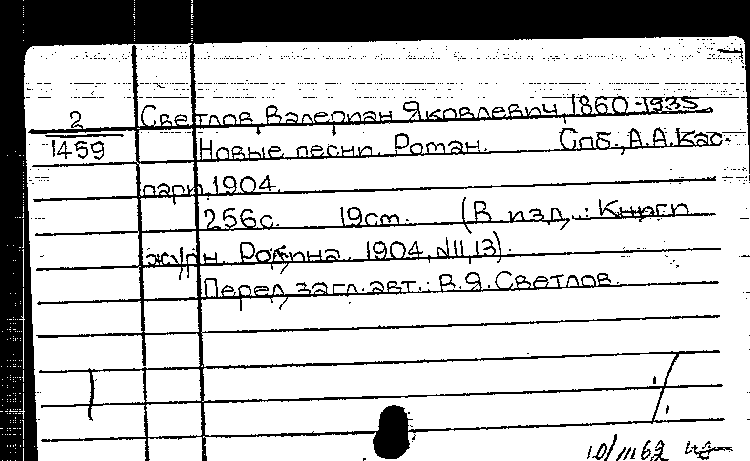 2
1459
Светлов, Валериан Яковлевич, 1860-1935.
Новые песни. Роман. Спб., А.А.Кас-
пари, 1904.
256с. 19см. (В изд.: Книги
журн. Родина. 1904, №11,13).
Перед загл. авт.: В.Я.Светлов.